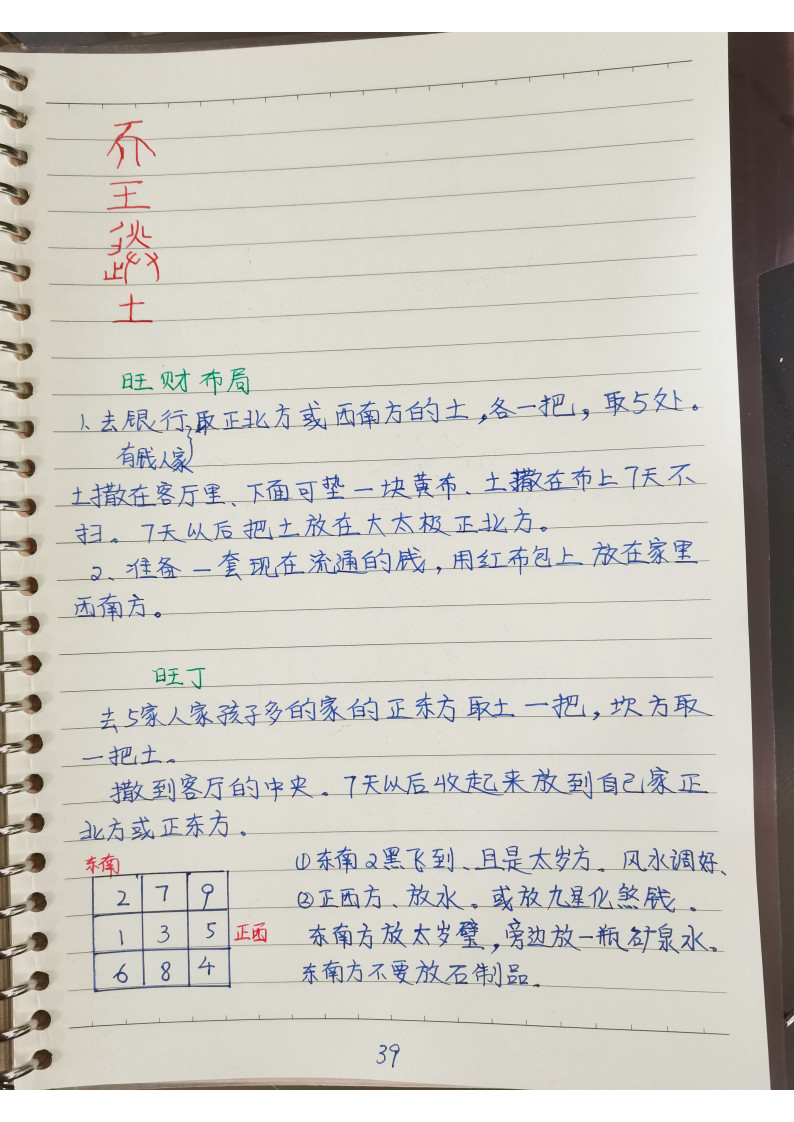 王
土
旺财布局
1、去银行取正北方或西南方的土,各一把,取5处。
有钱人家
土撒在客厅里、下面可垫一块黄布、土撒在布上7天不
扫。7天以后把土放在大太极正北方。
2、准备一套现在流通的钱,用红布包上放在家里
西南方。
旺丁
去5家人家孩子多的家的正东方取土一把,坎方取
一把土。
撒到客厅的中央。7天以后收起来放到自己家正
北方或正东方。
东南
2 7 9
1 3 5 正西
6 8 4
①东南2黑飞到、且是太岁方。风水调好、
②正西方、放水。或放九星化煞钱。
东南方放太岁璧,旁边放一瓶矿泉水。
东南方不要放石制品。
39